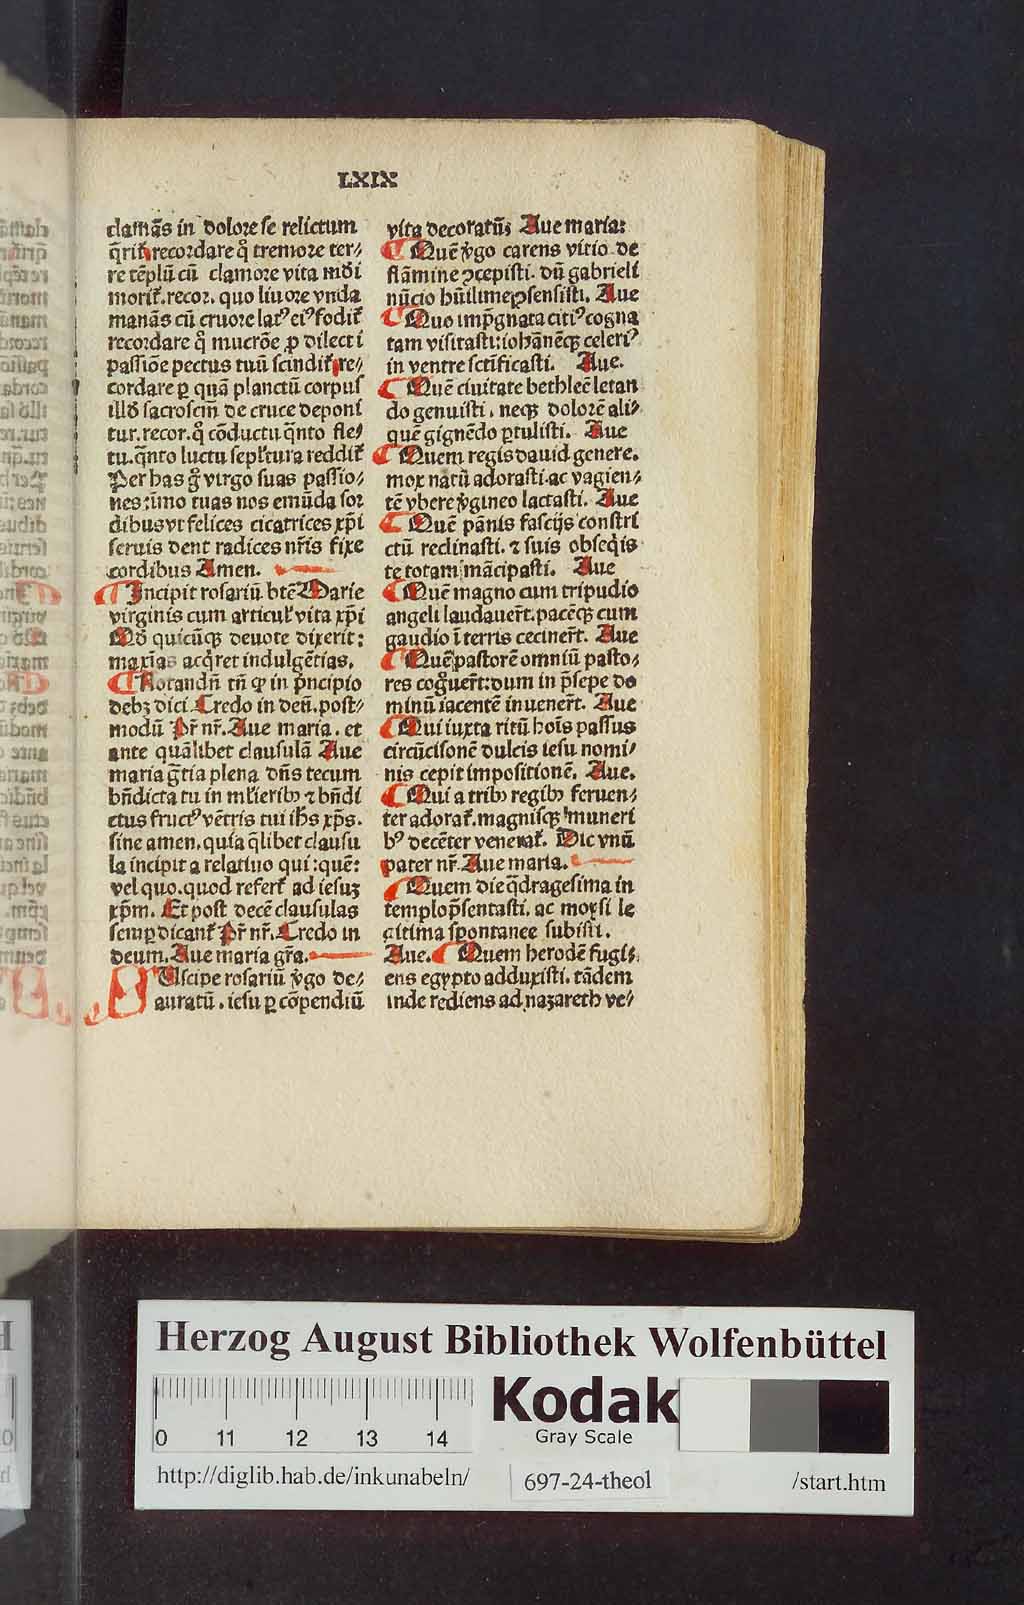 LXIX
clamās in dolore se relictum
q̄rit᷑ recordare q̊ tremore ter⸗
re tēplū cū clamore vita mūdi
morit᷑. recor. quo liuore vnda
manās cū cruore latꝰ eiꝰ fodit᷑
recordare q̊ mucrōe ꝑ dilecti
passiōe pectus tuū scindit᷑ re⸗
cordare ꝑ quā planctū corpus
illd̄ sacroscm̄ de cruce deponi
tur. recor. q̊ cōductu q̄nto fle⸗
tu. q̄nto luctu sepl̄tura reddit᷑
Per has g̊ virgo suas passio⸗
nes: imo tuas nos emūda sor
dibus vt felices cicatrices xp̄i
seruis dent radices nr̄is fixe
cordibus Amen.
¶ Incipit rosariū btē Marie
virginis cum articul᷑ vita xp̄i
Mō quicūqꝫ deuote dixerit:
maxīas acq̄ret indulgētias.
¶ Notandū tn̄ ꝙ in p̄ncipio
debꝫ dici Credo in deū. post⸗
modū Pr̄ nr̄. Aue maria. et
ante quālibet clausulā Aue
maria gr̄tia plena dn̄s tecum
bn̄dicta tu in ml̄ieribꝫ ⁊ bn̄di
ctus fructꝰ vētris tui ih̄s xp̄s.
sine amen. quia q̄libet clausu
la incipit a relatiuo qui: quē:
vel quo. quod refert᷑ ad iesuꝫ
xp̄m. Et post decē clausulas
semꝑ dicant᷑ Pr̄ nr̄. Credo in
deum. Aue maria gr̄a.
SUscipe rosariū v̄go de⸗
auratū. iesu ꝑ cōpendiū
vita decoratū; Aue maria:
¶ Quē v̄go carens vitio de
flāmine ꝯcepisti. dū gabrieli
nūcio hūilime ꝯsensisti. Aue
¶ Quo imp̄gnata citiꝰ cogna
tam visitasti: iohānēqꝫ celeriꝰ
in ventre sctīficasti. Aue.
¶ Quē ciuitate bethleē letan
do genuisti. neqꝫ dolorē ali⸗
quē gignēdo ꝑtulisti. Aue
¶ Quem regis dauid genere.
mox natū adorasti. ac vagien⸗
tē vbere v̄gineo lactasti. Aue
¶ Quē pānis fascijs constri
ctū reclinasti. ⁊ suis obseq̄is
te totam mācipasti. Aue
¶ Quē magno cum tripudio
angeli laudauer̄t. pacēqꝫ cum
gaudio ī terris cecinēr̄t. Aue
¶ Quē pastorē omniū pasto⸗
res cog̊uer̄t: dum in p̄sepe do
minū iacentē inuener̄t. Aue
¶ Qui iuxta ritū hoīs passus
circūcisionē dulcis iesu nomi⸗
nis cepit impositionē. Aue.
¶ Qui a tribꝫ regibꝫ feruen⸗
ter adorat᷑. magnisqꝫ muneri
bꝰ decēter venerat᷑. Dic vnū
pater nr̄. Aue maria.
¶ Quem die q̄dragesima in
templo p̄sentasti. ac moysi le
gitima spontanee subisti.
Aue. ¶ Quem herodē fugi⸗
ens egypto adduxisti. tādem
inde rediens ad nazareth ve⸗
Herzog August Bibliothek Wolfenbüttel
0 11 12 13 14
Kodak
Gray Scale
http://diglib.hab.de/inkunabeln/
697-24-theol
/start.htm